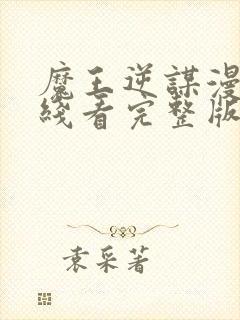 魔王逆謀漫
綫看完整版
袁采著